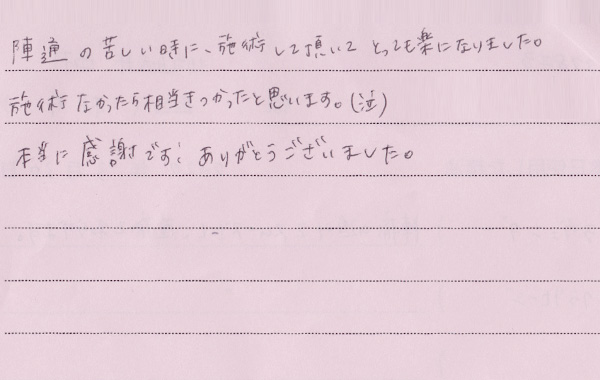 陣通の苦しい時に、施術して頂いて とっても楽になりました。
施術なかったら相当きつかったと思います。(泣)
本当に感謝です! ありがとうございました。